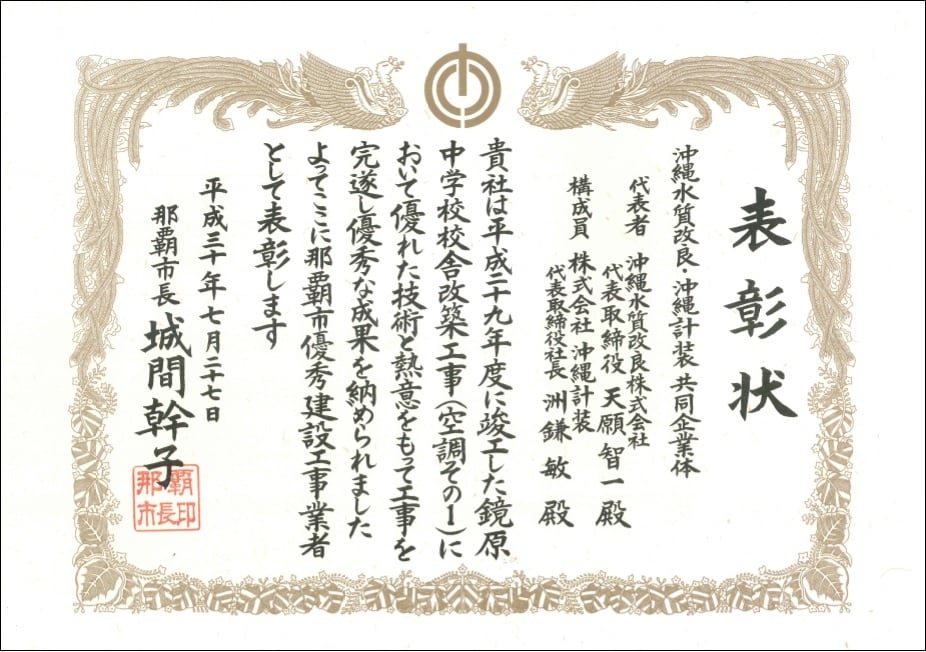 表彰状
沖縄水質改良・沖縄計装 共同企業体
代表者 沖縄水質改良株式会社
代表取締役 天願智一殿
構成員 株式会社 沖縄計装
代表取締役社長 洲鎌敏殿
貴社は平成二十九年度に竣工した鏡原
中学校校舎改築工事(空調その1)に
おいて優れた技術と熱意をもって工事を
完遂し優秀な成果を納められました
よってここに那覇市優秀建設工事業者
として表彰します
平成三十年七月二十七日
那覇市長 城間幹子
那覇
市長印